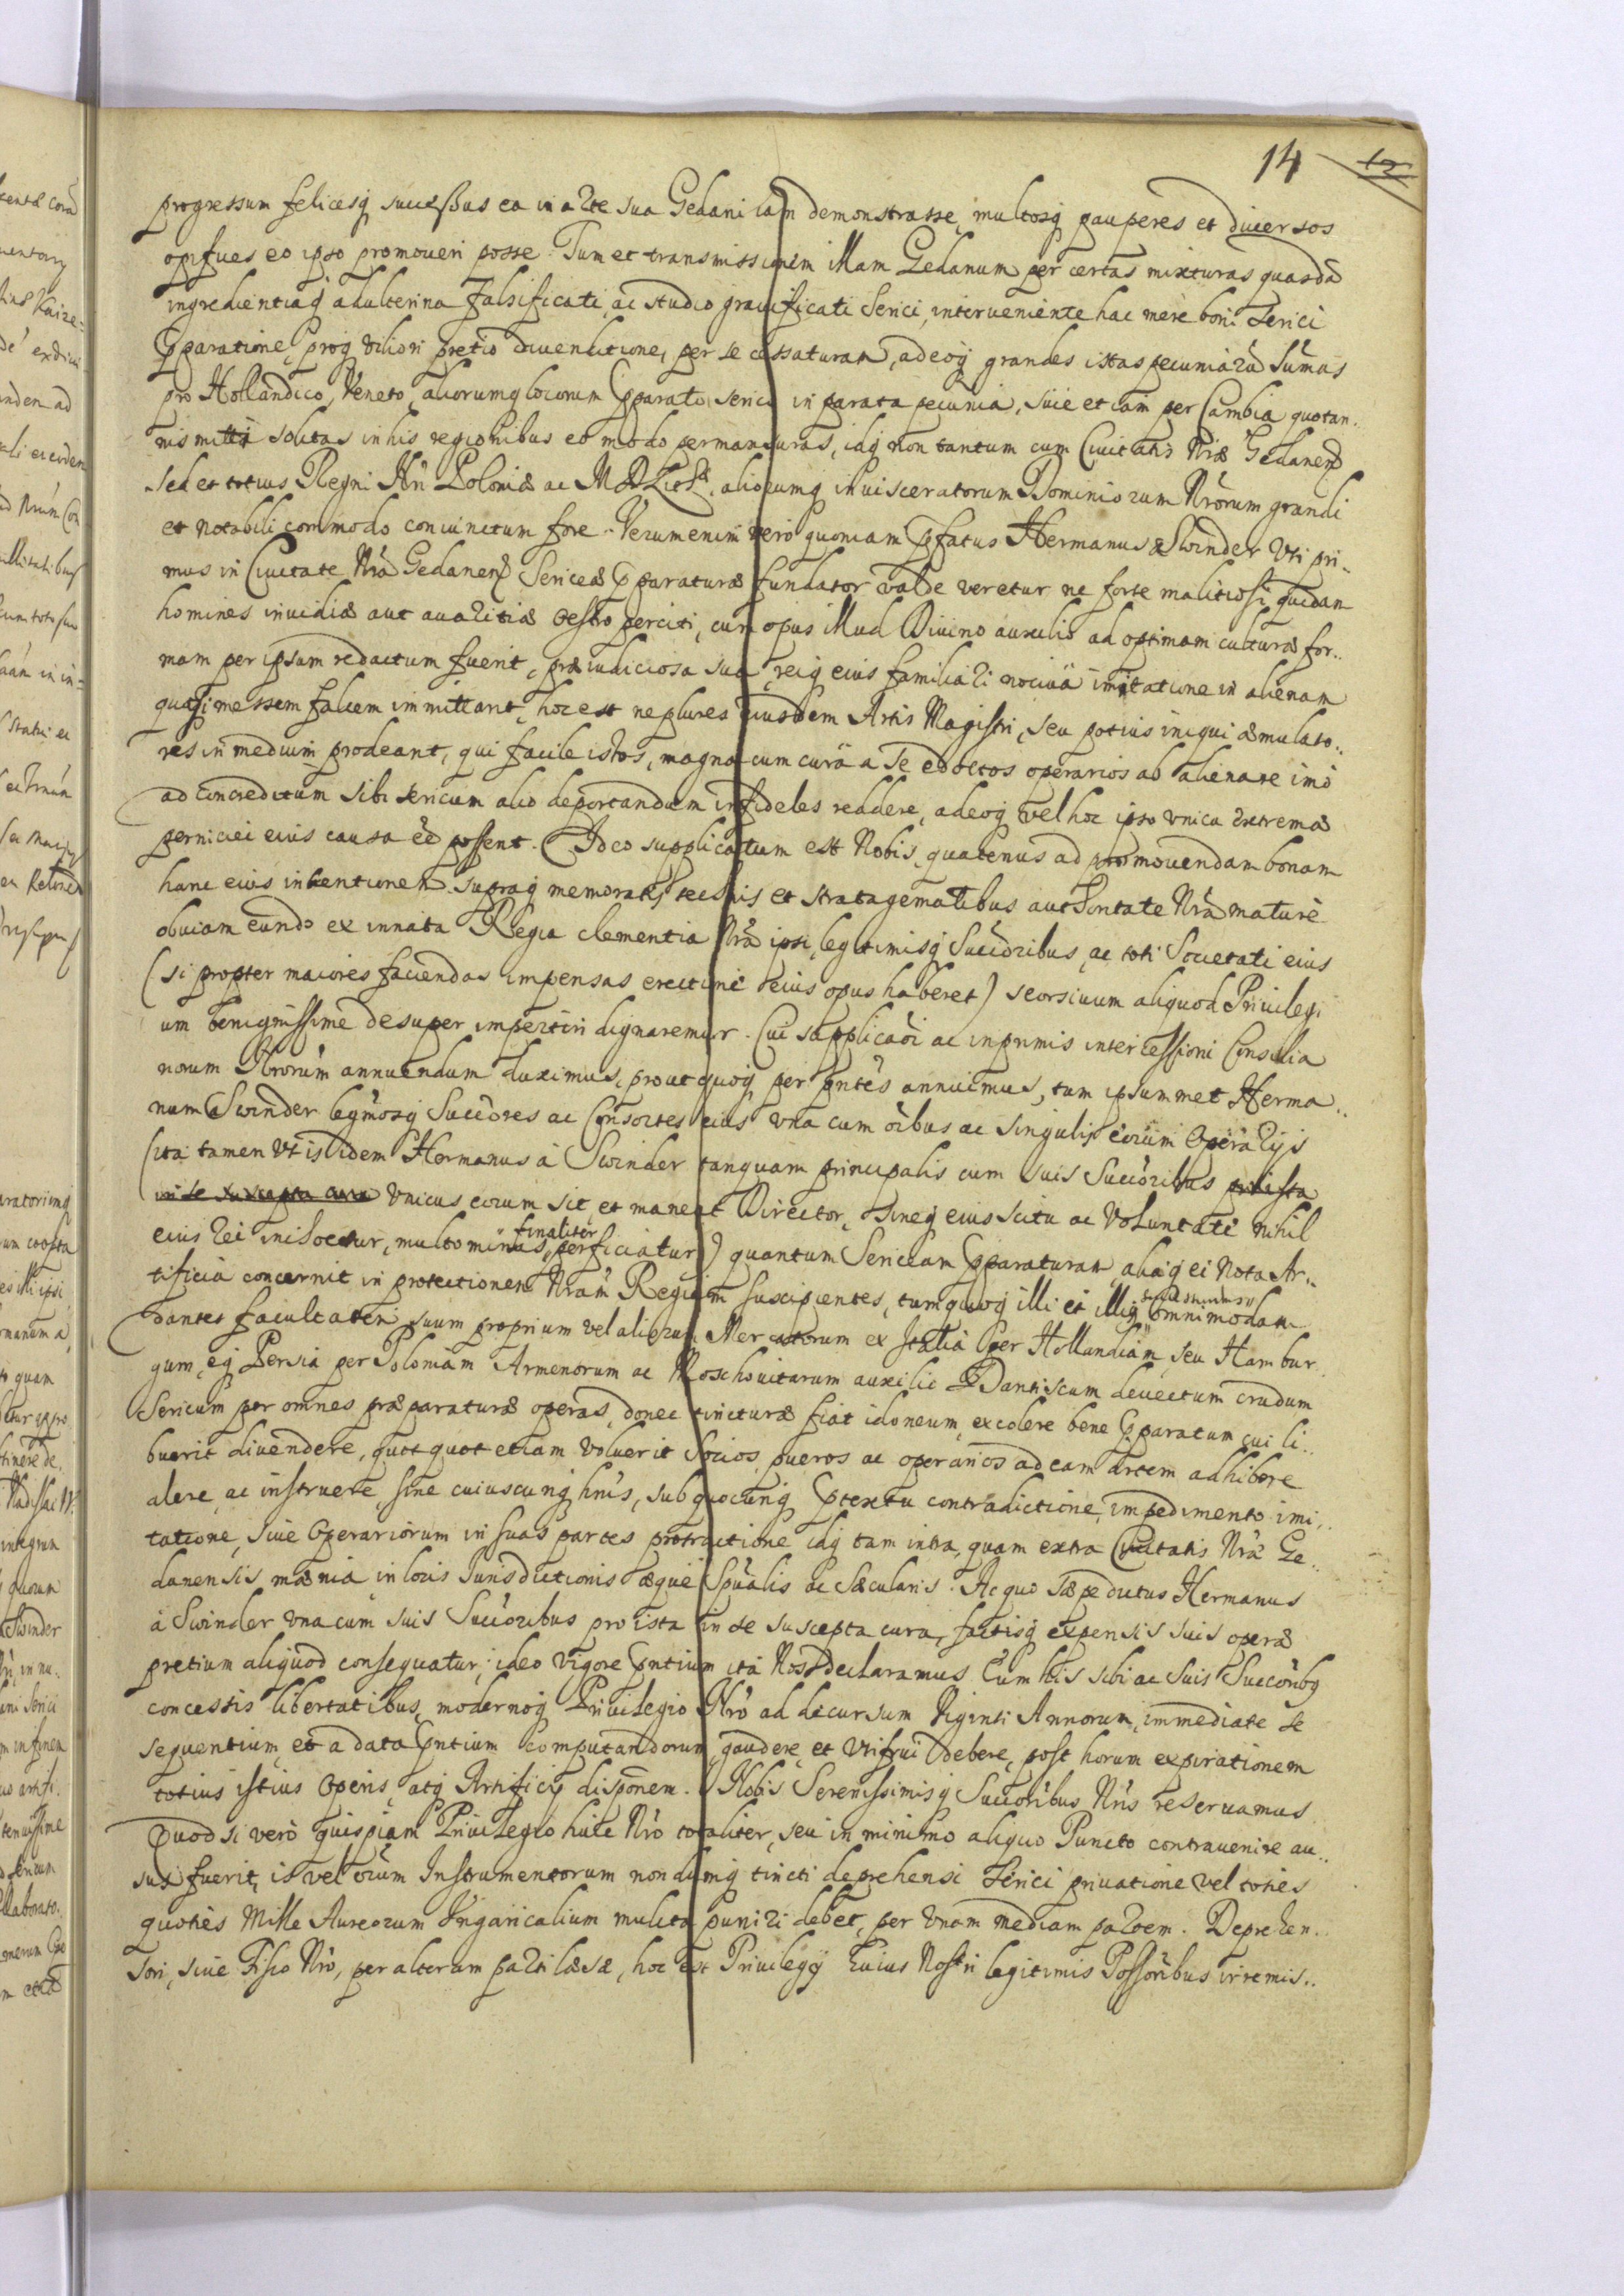 14 12
progressum felicesq successus ea in arte sua Gedani iam demonstrasse, multosq pauperes et diuersos
opifices eo ipso promoueri posse. Tum et transmissionem illam Gedanum per certas mixturas quasdã
ingredientiaq adulterina falsificati, ac studio grauificati Serici, interueniente hac mere boni Serici
pparatione, proq viliori pretio diuenditione, per se cessaturam, adeoq grandes istas pecuniarũ Sum̃as
pro Hollandico, Veneto, aliorumq locorum pparato serico in parata pecunia, siue etiam per Cambia quotan..
nis mitti solitas in his regionibus eo modo permansuras, idq non tantum cum Ciuitatis Nræ Gedanen
sed et totius Regni Nri Poloniæ ac M D Lit, aliorumq inuisceratorum Dominiorum Nrorum grandi
et notabili commodo coniunctum fore. Verumenim vero quoniam pfatus Hermanus a Swinder vti pri-
mus in Ciuitate Nra Gedanen Sericeæ pparaturæ fundator valde veretur ne forte malitiosi quidam
homines inuidiæ aut auaritiæ oestro perciti, cum opus illud Diuino auxilio ad optimam culturæ for..
mam per ipsum redactum fuerit, præiudiciosa sua, reiq eius familiari nociuâ imitatione in alienam
quasi messem falcem immittant, hoc est ne plures eiusdem Artis Magistri, seu potius iniqui æmulato..
res in medium prodeant, qui facile istos, magna cum curâ a Se edoctos operarios ab alienare imo
ad concreditum sibi sericum alio deportandum infideles reddere, adeoq vel hoc ipso vnica extremæ
perniciei eius causa ee possent. Ideo supplicatum est Nobis, quatenus ad promouendam bonam
hanc eius intentionem supraq memoratis technis et stratagematibus authoritate Nrâ maturè
obuiam eundo ex innata Regia clementia Nrâ ipsi, legitimisq Succoribus, ac toti Societati eius
(si propter maiores faciendas impensas erectione eius opus haberet) seorsiuum aliquod Priuilegi
um benignissimè desuper impertiri dignaremur. Cui supplicaoi ac inprimis intercessioni Consilia
riorum Nrorum annuendum duximus, prout quoq per pntes annuimus, tum ipsummet Herma..
num a Swinder legmosq Succores ac Consortes eius vna cum oibus ac singulis eorum Operarijs
(ita tamen vt is idem Hermanus à Swinder tanquam principalis cum suis Succoribus pro ista
in se suscepta cura vnicus eorum sit et maneat Director, sineq eius scitu ac voluntate nihil
eius rei inchoetur, multo minus finaliter perficiatur) quantum Sericeam pparaturam, aliaq ei nota Ar..
tificia concernit in protectionem Nram Regiam suscipientes, tum quoq illi et illis omnimodam
dantes facultatem suum proprium vel aliorum Mercatorum ex Italia per Hollandiam, seu Hambur
gum, eq Persia per Poloniam Armenorum ac Moschouitarum auxilio Dantiscum deuectum crudum
Sericum per omnes præparaturæ operas, donec tincturæ fiat idoneum, excolere bene pparatum cui li..
buerit diuendere, quot quot etiam voluerit Socios pueros ac operarios ad eam artem adhibere
alere, ac instruere, sine cuiuscunq hnis, sub quocunq ptextu contradictione, impedimento imi..
tatione, siue Operariorum in suas partes protractione idq tam intra, quam extra Ciuitatis Nræ Ge..
danensis mænia, in locis Iurisdictionis æque Spualis ac Sæcularis. Ac quo sæpe dictus Hermanus
à Swinder vna cum suis Succoribus pro ista in se suscepta cura, factisq expensis suis operæ
pretium aliquod consequatur, ideo vigore pntium ita Nos declaramus Eum his sibi ac suis Succoribq
concessis libertatibus, modernoq Priuilegio Nro ad decursum Viginti Annorum, immediate se
sequentium, et a data pntium computandorum, gaudere, et vtifrui debere, post horum expirationem
totius istius Operis, atq Artificij disponem. Nobis Serenissimisq Succoribus Nris reseruamus
Quod si verò quispiam Priuilegio huic Nro totaliter, seu in minimo aliquo Puncto contrauenire au..
sus fuerit, is vel oium Instrumentorum nondumq tincti deprehensi Serici priuatione vel toties
quoties Mille Aureorum Vngaricalium mulcta puniri debet, per vnam mediam partem. Deprehen..
sori, siue Fisco Nro, per alteram parti læsæ, hoc est Priuilegij huius Nostri legitimis Possoribus irremis..